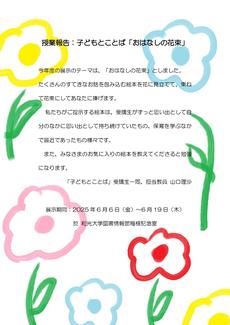 授業報告：子どもとことば「おはなしの花束」
今年度の展示のテーマは、「おはなしの花束」としました。
たくさんのすてきなお話を包み込む絵本を花に見立てて、束ね
て花束にしてあなたに捧げます。
私たちがご提示する絵本は、受講生がずっと思い出として自
分のなかに思い出として持ち続けていたもの、保育を学ぶなか
で最近であったもの様々です。
また、みなさまのお気に入りの絵本を教えてくださると勉強
になります。
「子どもとことば」受講生一同、担当教員 山口理沙
展示期間：2025年6月6日（金）～6月19日（木）
於 和光大学図書情報館梅根記念室